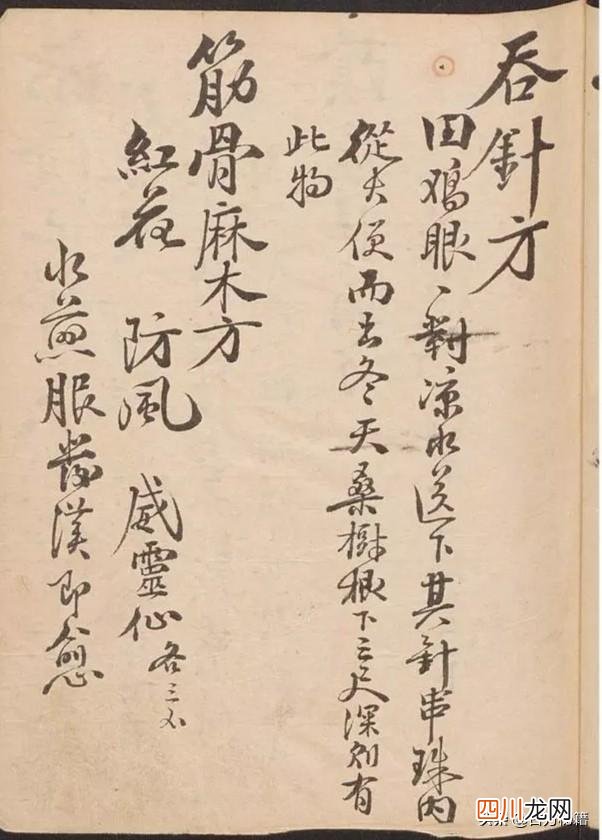 吞針方
田鸡眼一對凉水送下其針串珠內
從大便而去冬天桑樹根下三尺深則有
此物
筋骨麻木方
紅花 防風 威靈仙 各三不
水煎服發漢即愈
四川龙网